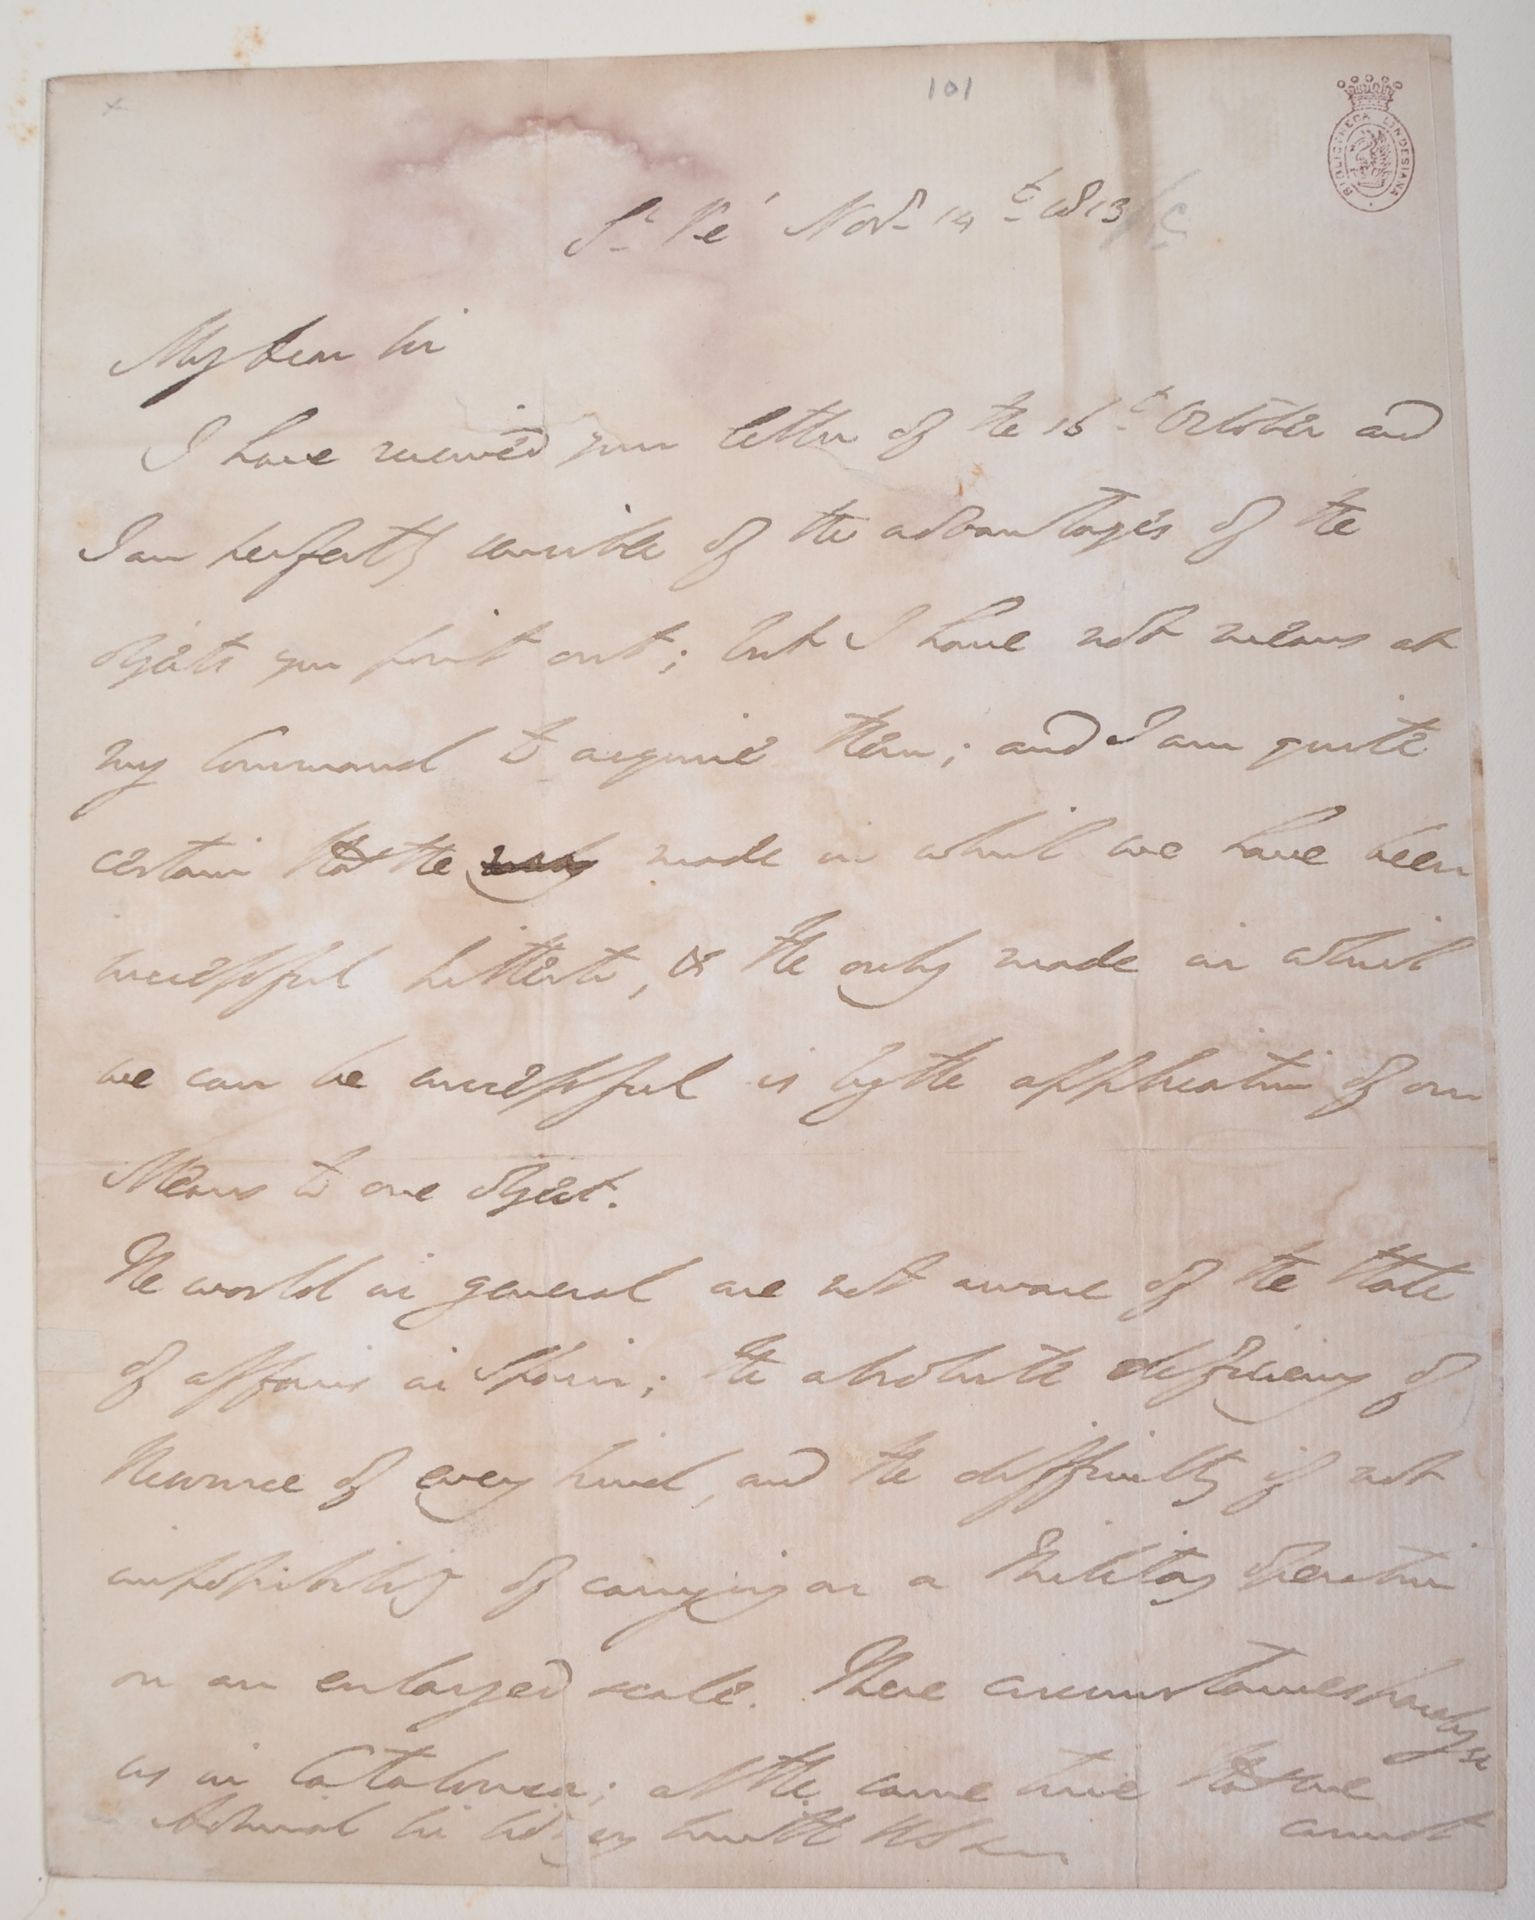 101
BIBLIOTHECA LINDESIANA
St. Pé Novr. 14th 1813
My dear Sir
I have received your letter of the 16th October and
I am perfectly sensible of the advantages of the
objects you point out; but I have not means at
my Command to acquire them; and I am quite
certain that the mode in which we have been
successful hitherto, & the only mode in which
we can be successful is by the application of our
Means to one object.
The world in general are not aware of the State
of affairs in Spain; the absolute deficiency of
Resource of every kind, and the difficulty if not
impossibility of carrying on a Military operation
on an enlarged scale. These circumstances
us in Catalonia; at the same time that we
Admiral Sir Sidney Smith cannot